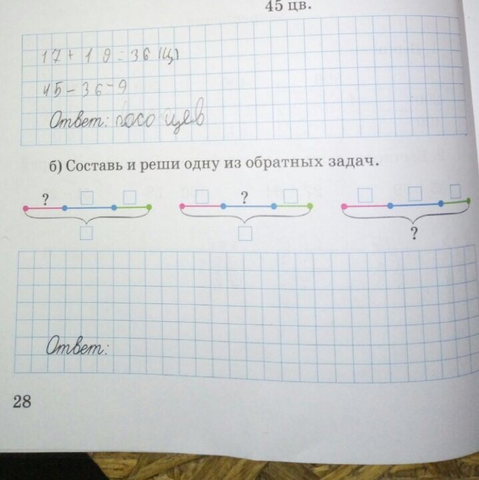 45 цв.
17 + 19 = 36 (ц)
45 - 36 = 9
Ответ:
б) Составь и реши одну из обратных задач.
? ?
?
Ответ:
28